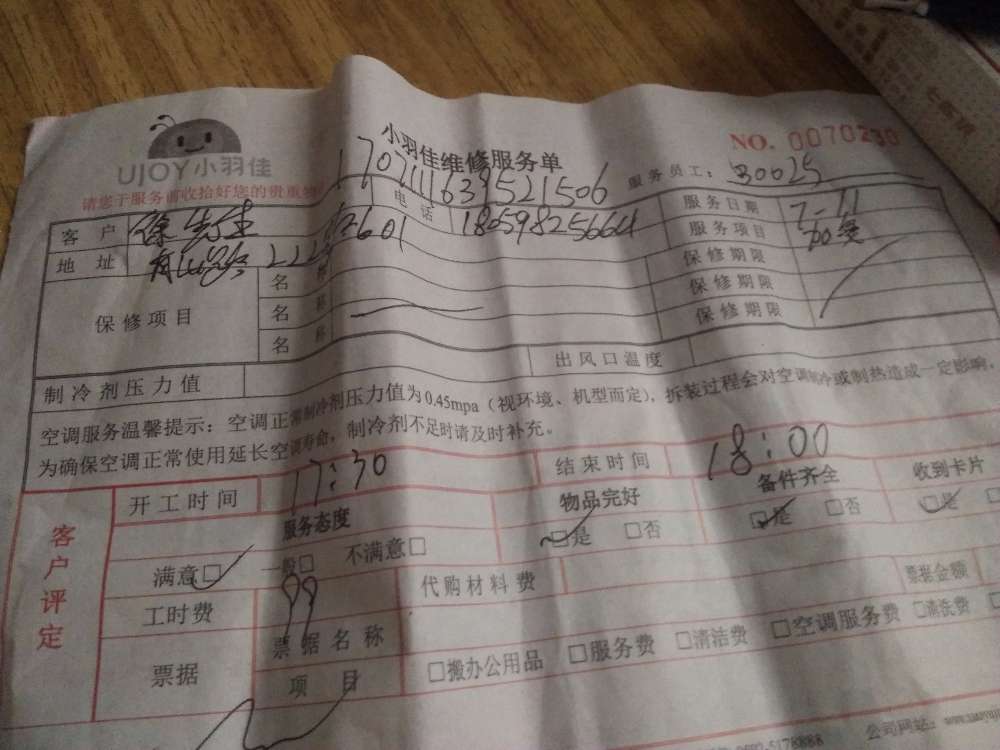 UJOY小羽佳
小羽佳维修服务单
NO. 0070230
请您于服务前收拾好您的贵重物
170711163521506
服务员工: 30025
客户 徐先生 电话 18059825664 服务日期 7-11
地址 222 601 服务项目
保修项目 名称 保修期限
名称 保修期限
名称 保修期限
制冷剂压力值 出风口温度
空调服务温馨提示:空调正常制冷剂压力值为0.45mpa(视环境、机型而定),拆装过程会对空调制冷或制热造成一定影响,
为确保空调正常使用延长空调寿命,制冷剂不足时请及时补充。
客户评定
开工时间 17:30 结束时间 18:00
服务态度 物品完好 备件齐全 收到卡片
满意□ 一般□ 不满意□ □是 □否 □是 □否 □是
工时费 99 代购材料费 票据金额
票据 票据名称 □搬办公用品 □服务费 □清洁费 □空调服务费 □清洗费
项目
5178888 公司网站: